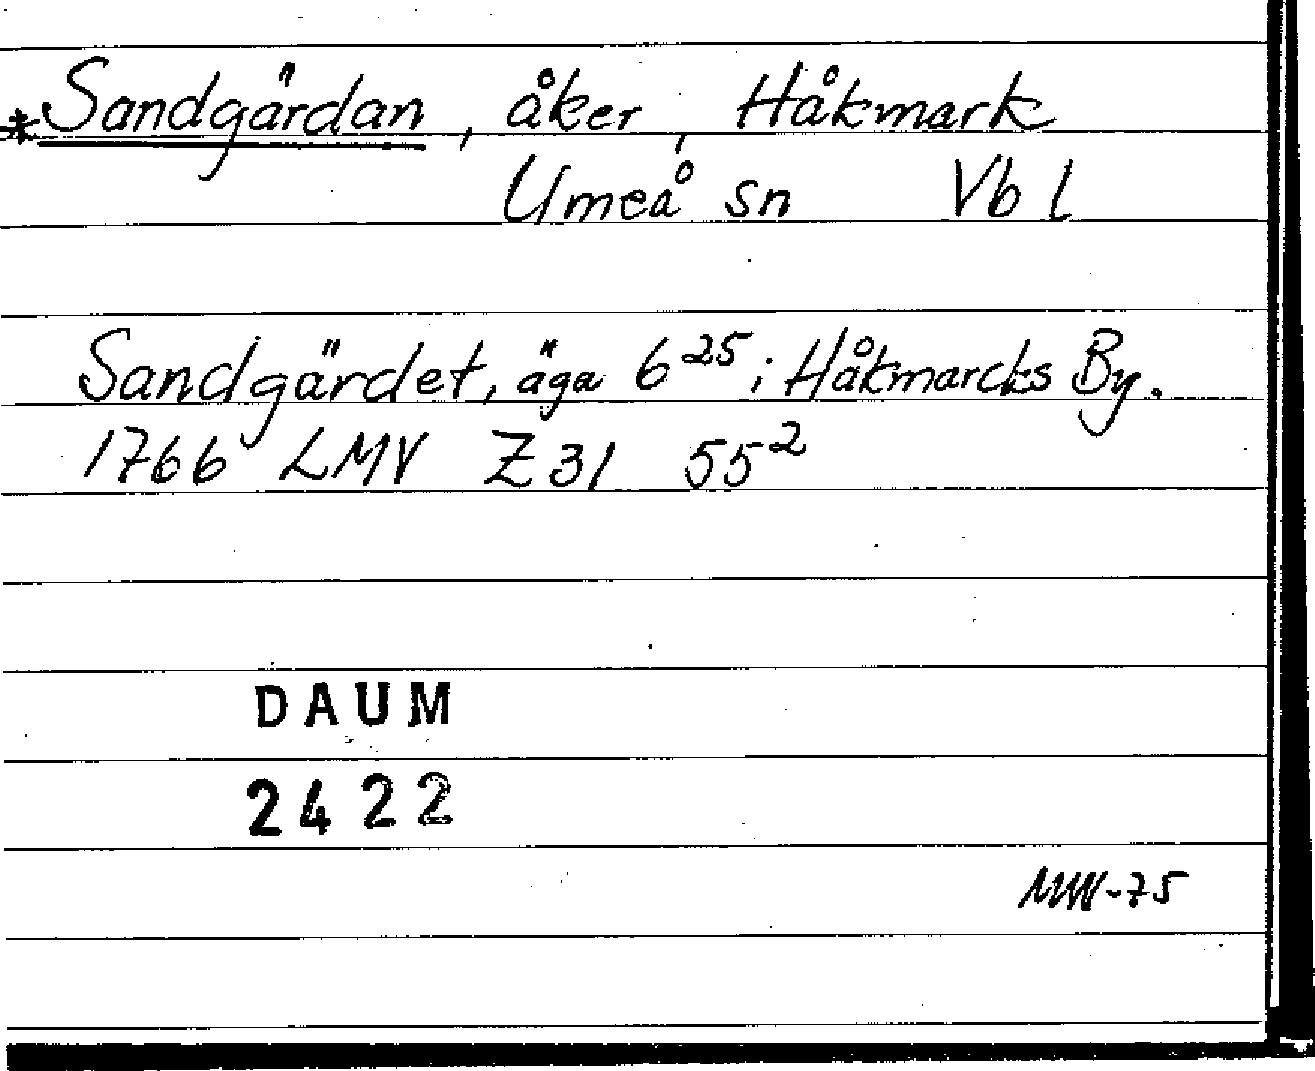 *Sandgärdan, åker, Håkmark
Umeå sn Vb l
Sandgärdet, äga 6²⁵; Håkmarcks By.
1766 LMV Z 31 55²
DAUM
2422
MW-75